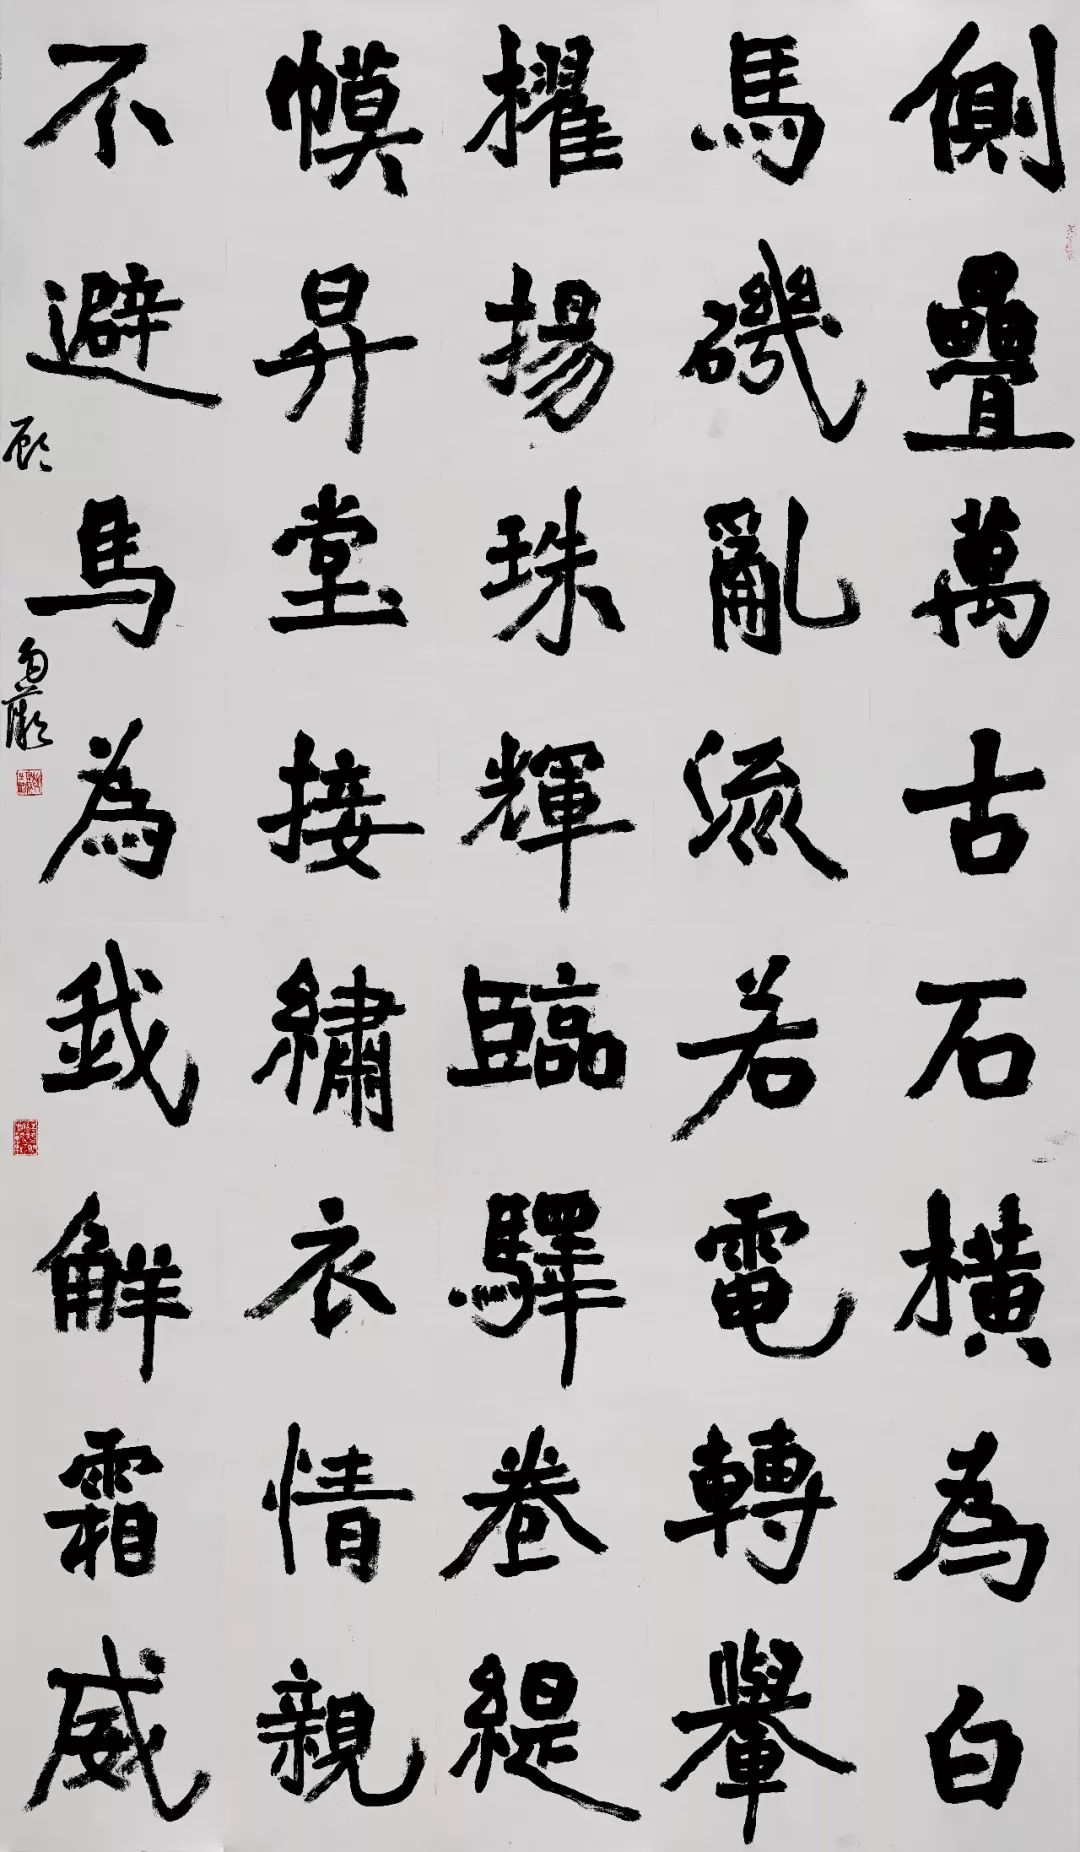 側疊萬古石橫為白
馬磯亂流若電轉舉
櫂揚珠輝臨驛卷緹
幙昇堂接繡衣情親
不避馬為我解霜威